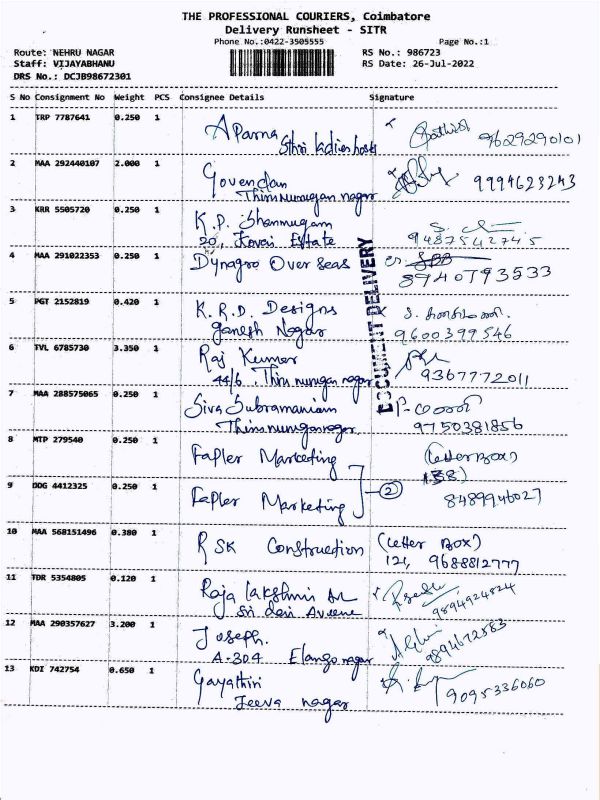 THE PROFESSIONAL COURIERS, Coimbatore
Delivery Runsheet - SITR
Phone No.:0422-3505555 Page No.:1
Route: NEHRU NAGAR RS No.: 986723
Staff: VIJAYABHANU RS Date: 26-Jul-2022
DRS No.: DCJB98672301
S No Consignment No Weight PCS Consignee Details Signature
1 TRP 7787641 0.250 1 Aparna
Sthri Ladies hostel 9629290101
2 MAA 292440107 2.000 1 Govendan 9994623243
Thirumurugan nagar
3 KRR 5505720 0.250 1 K.P. Shanmugam
20, Kovai Estate 9487542745
4 MAA 291022353 0.250 1 Dynagro Over seas 8940793533
DOCUMENT DELIVERY
5 PGT 2152819 0.420 1 K.R.D. Designs
Ganesh Nagar 9600399546
6 TVL 6785730 3.350 1 Raj Kumar
44/6, Thirumurugan nagar 9367772011
7 MAA 288575065 0.250 1 Siva Subramaniam
Thirumurugan nagar 9750381856
8 MTP 279540 0.250 1 Fapler Marketing (letter Box)
9 DDG 4412325 0.250 1 Fapler Marketing 2 8489946027
10 MAA 568151496 0.380 1 RSK Construction (Letter Box)
121, 9688812777
11 TDR 5354805 0.120 1 Raja lakshmi
Sri devi Avenue 9894924824
12 MAA 290357627 3.200 1 Joseph.
A-304 Elango nagar 9894672583
13 KDI 742754 0.650 1 Gayathiri 9095336060
Jeeva nagar